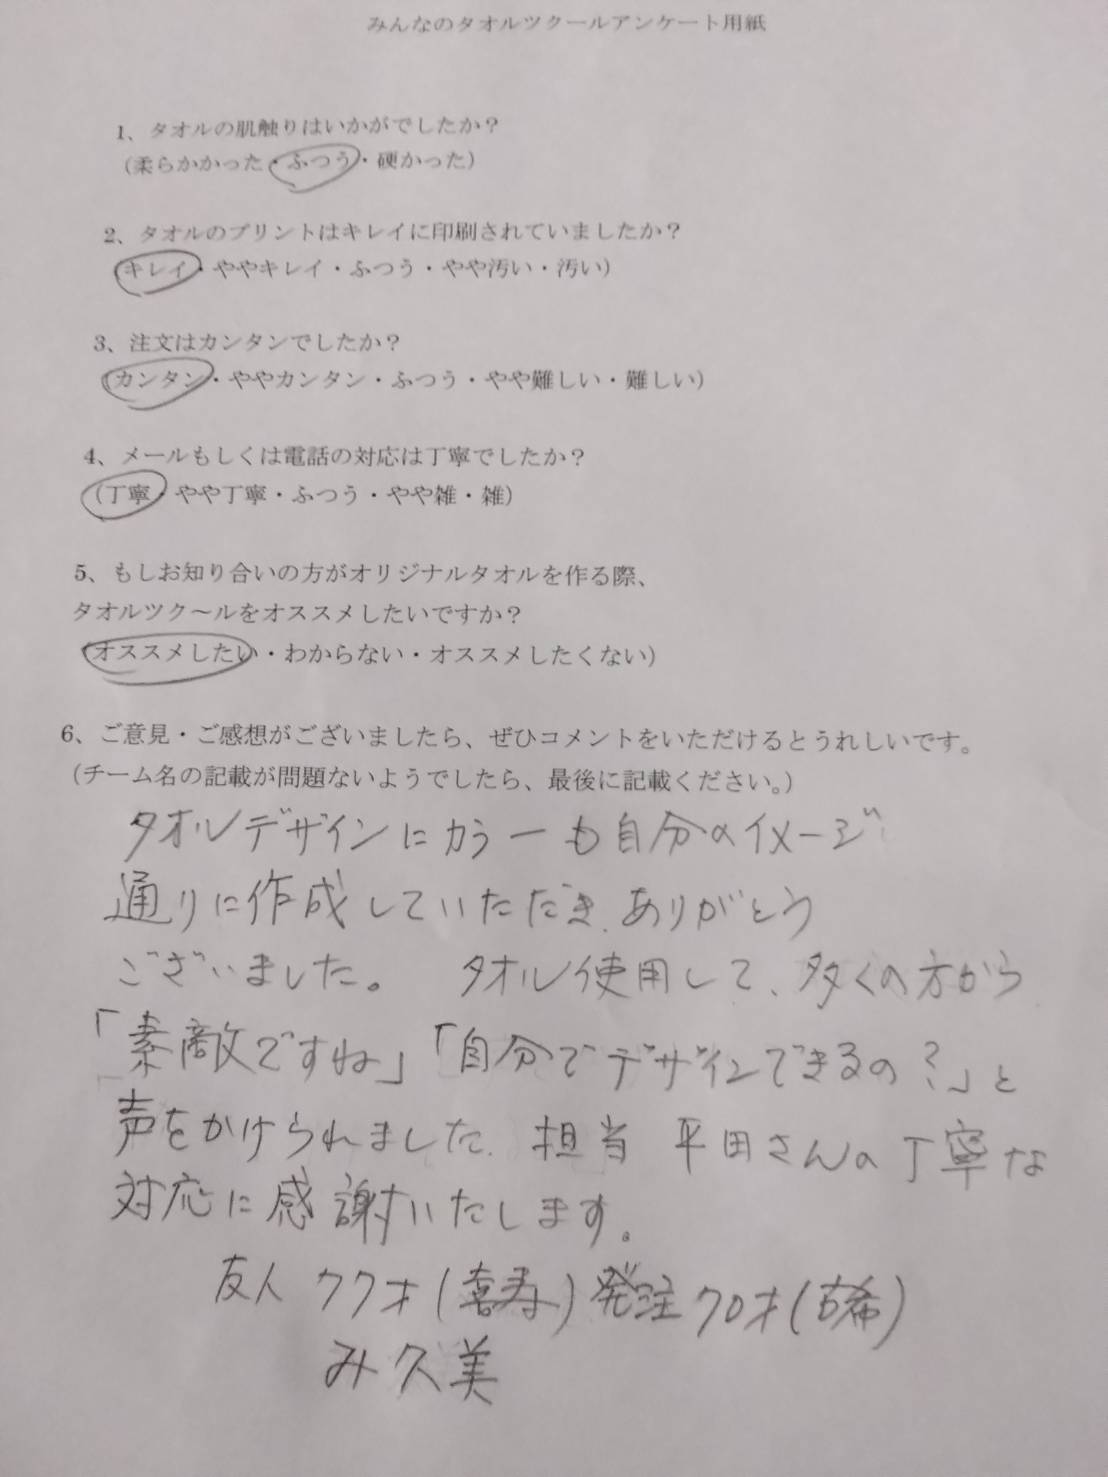 みんなのタオルツクールアンケート用紙
1、タオルの肌触りはいかがでしたか？
（柔らかかった・ふつう・硬かった）
2、タオルのプリントはキレイに印刷されていましたか？
（キレイ・ややキレイ・ふつう・やや汚い・汚い）
3、注文はカンタンでしたか？
（カンタン・ややカンタン・ふつう・やや難しい・難しい）
4、メールもしくは電話の対応は丁寧でしたか？
（丁寧・やや丁寧・ふつう・やや雑・雑）
5、もしお知り合いの方がオリジナルタオルを作る際、
タオルツク～ルをオススメしたいですか？
（オススメしたい・わからない・オススメしたくない）
6、ご意見・ご感想がございましたら、ぜひコメントをいただけるとうれしいです。
（チーム名の記載が問題ないようでしたら、最後に記載ください。）
タオルデザインにカラーも自分のイメージ
通りに作成していただき、ありがとう
ございました。 タオル使用して、多くの方から
「素敵ですね」「自分でデザインできるの？」と
声をかけられました。担当 平田さんの丁寧な
対応に感謝いたします。
友人 77才(喜寿) 発注 70才(古希)
み久美